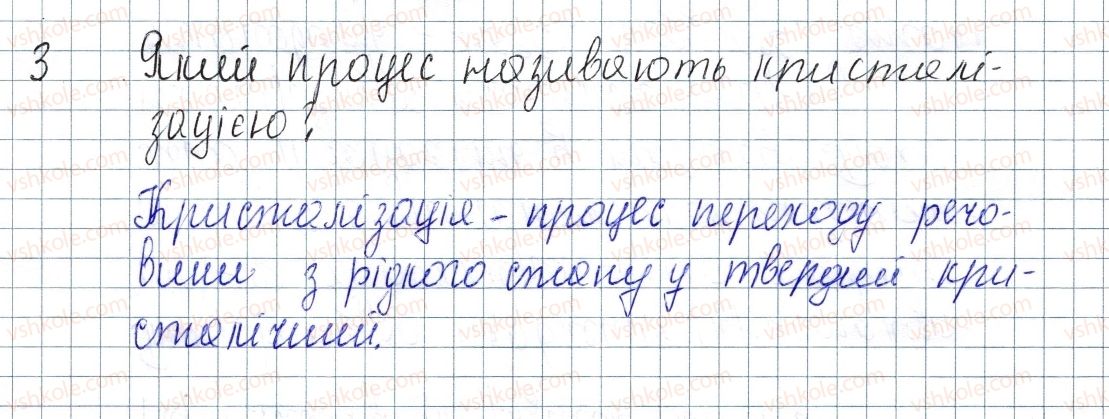 3 Який процес називають кристалі-
зацією?
Кристалізація - процес переходу речо-
вини з рідкого стану у твердий кри-
сталічний.